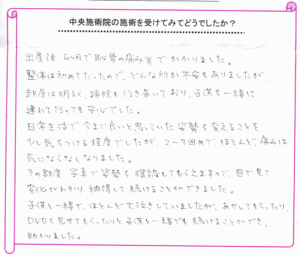 中央施術院の施術を受けてみてどうでしたか？
出産後 6ヶ月で恥骨の痛み等でかかりました。
整体は初めてだったので、どんな所か不安もありましたが、
部屋は明るく、掃除も行き届いており、子供と一緒に
連れて行っても安心でした。
日常生活で今まで良いと思っていた姿勢を変えることを
少し気をつける程度でしたが、2〜3回めで、ほとんど痛みは
気にならなくなりました。
その都度、写真で姿勢も確認してもらえますので、目で見て、
変化がわかり、納得して続けることができました。
子供と一緒で、ほとんど大泣きしていましたが、あやしてもらったり、
DVDを見せてもらったりと子供と一緒でも続けることができ、
助かりました。